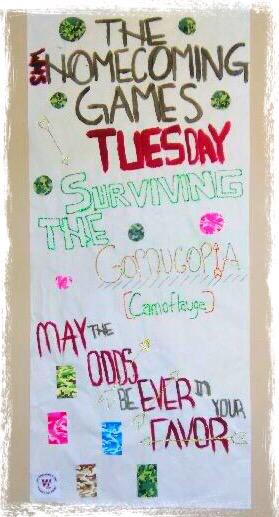 THE
WHS HOMECOMING
GAMES
TUESDAY
SURVIVING
THE
CORNUCOPIA
(Camoflauge)
MAY THE
ODDS
BE EVER IN YOUR
FAVOR